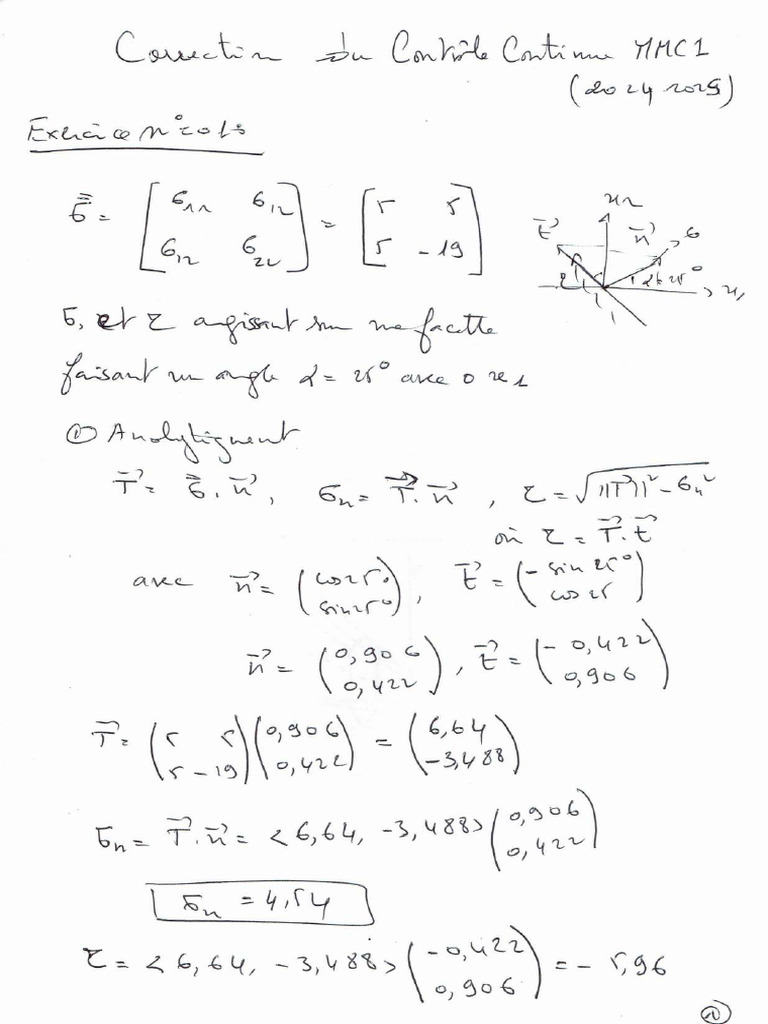 Correction du Contrôle Continu MMC1
(2024 2025)
Exercice n°=01:
σ̿ = [σ11 σ12; σ12 σ22] = [5 5; 5 -19]
x2
t⃗ n⃗ σ
τ α=25°
x1
σ, et τ agissant sur une facette
faisant un angle α = 25° avec o x1
① Analytiquement
T⃗ = σ̿ . n⃗ , σn = T⃗ . n⃗ , τ = √(||T⃗||² - σn²)
où τ = T⃗ . t⃗
avec n⃗ = (cos 25°; sin 25°), t⃗ = (- sin 25°; cos 25)
n⃗ = (0,906; 0,422), t⃗ = (- 0,422; 0,906)
T⃗ = (5 5; 5 -19)(0,906; 0,422) = (6,64; -3,488)
σn = T⃗ . n⃗ = <6,64, -3,488> (0,906; 0,422)
σn = 4,54
τ = <6,64, -3,488> (-0,422; 0,906) = - 5,96
①